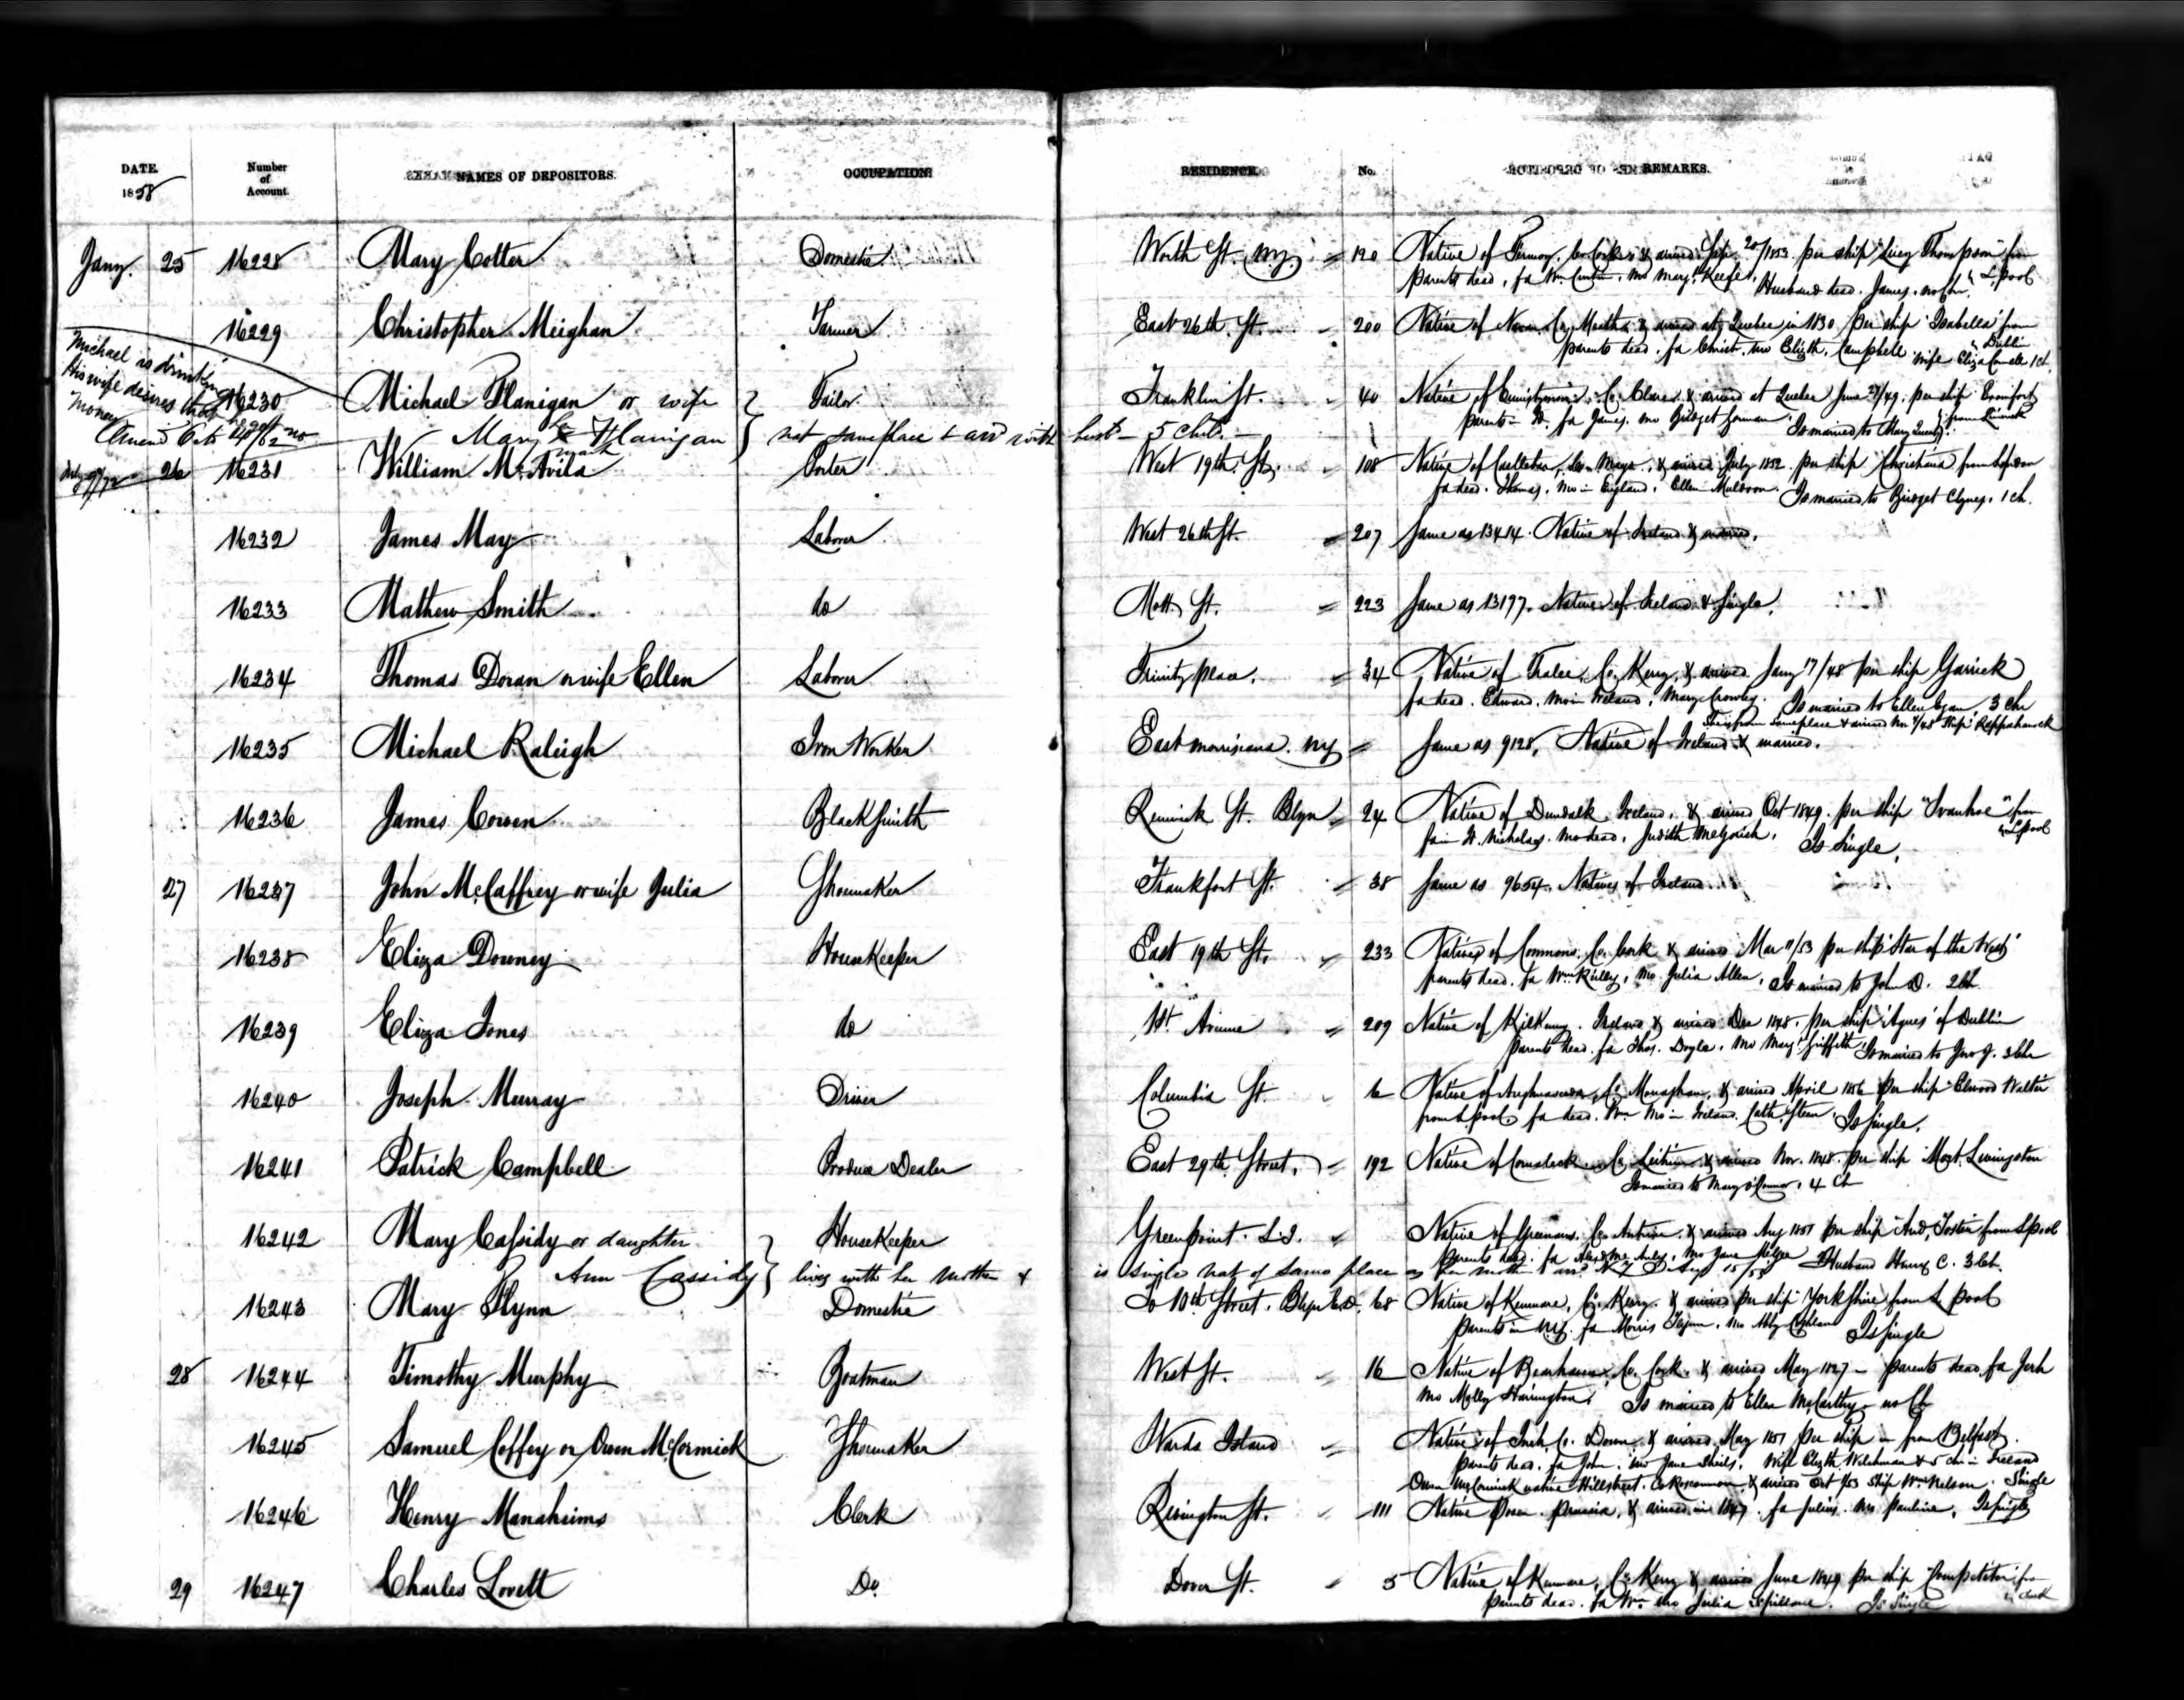 DATE. Number of Account. NAMES OF DEPOSITORS. OCCUPATION. RESIDENCE. No. REMARKS.
1858
Jany. 25 16228 Mary Cotter Domestic Worth St. N.Y. 120 Native of Fermoy, Co. Cork & arrived Sep. 20/1853 per ship "Lucy Thompson" from L.pool
parents dead, fa Wm, mo Mary Keefe. Husband dead. James. no ch.
16229 Christopher Meighan East 26th St. 200 Native of Co. Meath & arrived at Quebec in 1830 per ship "Isabella" from Dublin
parents dead. fa Christ. mo Elizth. Campbell wife Eliza 1 ch.
Michael is drinking
His wife desires that he get no
money
16230 Michael Flanigan or wife Tailor Franklin St. 40 Native of Co. Clare & arrived at Quebec June 27/49 per ship from Limerick
parents in N. fa James. mo Bridget Gorman Is married to Mary
Mary Flanigan not same place & arrd with husb - 5 chd.
26 16231 William McAvila Porter West 19th St. 108 Native of Castlebar, Co. Mayo, & arrived July 1852 per ship Christiana from London
fa dead. Thomas, mo in England, Ellen Muldoon. Is married to Bridget Clynes, 1 ch.
16232 James May Laborer West 26th St. 207 Same as 13414. Native of Ireland & married.
16233 Mathew Smith do Mott St. 223 Same as 13197. Native of Ireland & Single.
16234 Thomas Doran or wife Ellen Laborer Trinity place. 34 Native of Tralee, Co. Kerry, & arrived Jany 17/48 per ship Garrick
fa dead. Edward, mo in Ireland, Mary Crowley. Is married to Ellen Egan, 3 ch
She is from same place & arrived Nov 4/48 Ship Rappahanock
16235 Michael Raleigh Iron Worker East Morrisiana. N.Y. Same as 9128, Native of Ireland & married.
16236 James Cowen Blacksmith Renwick St. Blyn 24 Native of Dundalk. Ireland. & arrived Oct 1849. per ship "Ivanhoe" from L.pool
fa in N. Nicholas. mo dead, Judith Is Single.
27 16237 John McCaffrey or wife Julia Shoemaker Frankfort St. 38 Same as 9654. Natives of Ireland
16238 Eliza Downey HouseKeeper East 19th St. 233 Native of Commons. Co. Cork & arrived Mar 11/53 per ship "Star of the West"
parents dead. fa Wm Kelley, mo Julia Allen, Is married to John D. 2 ch
16239 Eliza Jones do 1st Avenue 209 Native of Kilkenny. Ireland & arrived Dec 1848. per ship "Agnes" of Dublin
parents dead. fa Thos. Doyle, mo Mary Griffith Is married to Jno J. 3 ch
16240 Joseph Murray Driver Columbia St. 6 Native of Co. Monaghan, & arrived April 1856 per ship Elwood Walter
from L.pool fa dead. Wm mo in Ireland. Cath. Steen Is Single.
16241 Patrick Campbell Produce Dealer East 29th Street. 192 Native of Co. Leitrim & arrived Nov. 1848. per ship Mort. Livingston
Is married to Mary O'Connor, 4 ch
16242 Mary Cassidy or daughter HouseKeeper Greenpoint. L.I. Native of Co. Antrim. & arrived Aug 1851 per ship "And. Foster" from L.pool
parents dead. mo Jane Husband Henry C. 3 ch.
Ann Cassidy lives with her Mother & is single nat of same place as her mother
16243 Mary Flynn Domestic So 10th Street. Blyn E.D. 68 Native of Kenmare, Co. Kerry. & arrived per ship Yorkshire from L.pool
parents in N.Y. fa Morris Flynn, mo Abby Is Single
28 16244 Timothy Murphy Boatman West St. 16 Native of Co. Cork. & arrived May 1827 - parents dead fa Jerh
mo Molly Harrington, Is married to Ellen McCarthy - no Ch
16245 Samuel Coffey or Owen McCormick Shoemaker Wards Island Native of Inch, Co. Down & arrived May 1851 per ship in from Belfast.
parents dead. fa John. mo Jane Shiels. Wife Elizth. Welchman & 5 ch in Ireland
Owen McCormick native Hillstreet. Co Roscommon & arrived Oct /53 Ship Wm Nelson. Single
16246 Henry Manaheims Clerk Rivington St. 111 Native Posen. Prussia, & arrived in 1847. fa Julius. mo Pauline. Is Single
29 16247 Charles Lovett Do. Dover St. 5 Native of Kenmare, Co. Kerry & arrived June 1849 per ship "Competitor" from Cork
parents dead. fa Wm mo Julia Spillane. Is Single